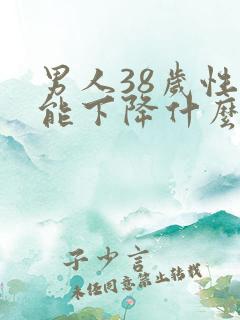 男人38歲性
能下降什麽
子少言
未任同意禁止转载